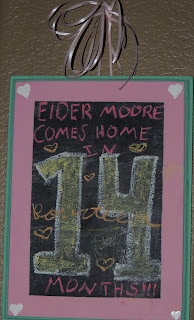 EIDER MOORE
COMES HOME
IN
14
MONTHS!!!